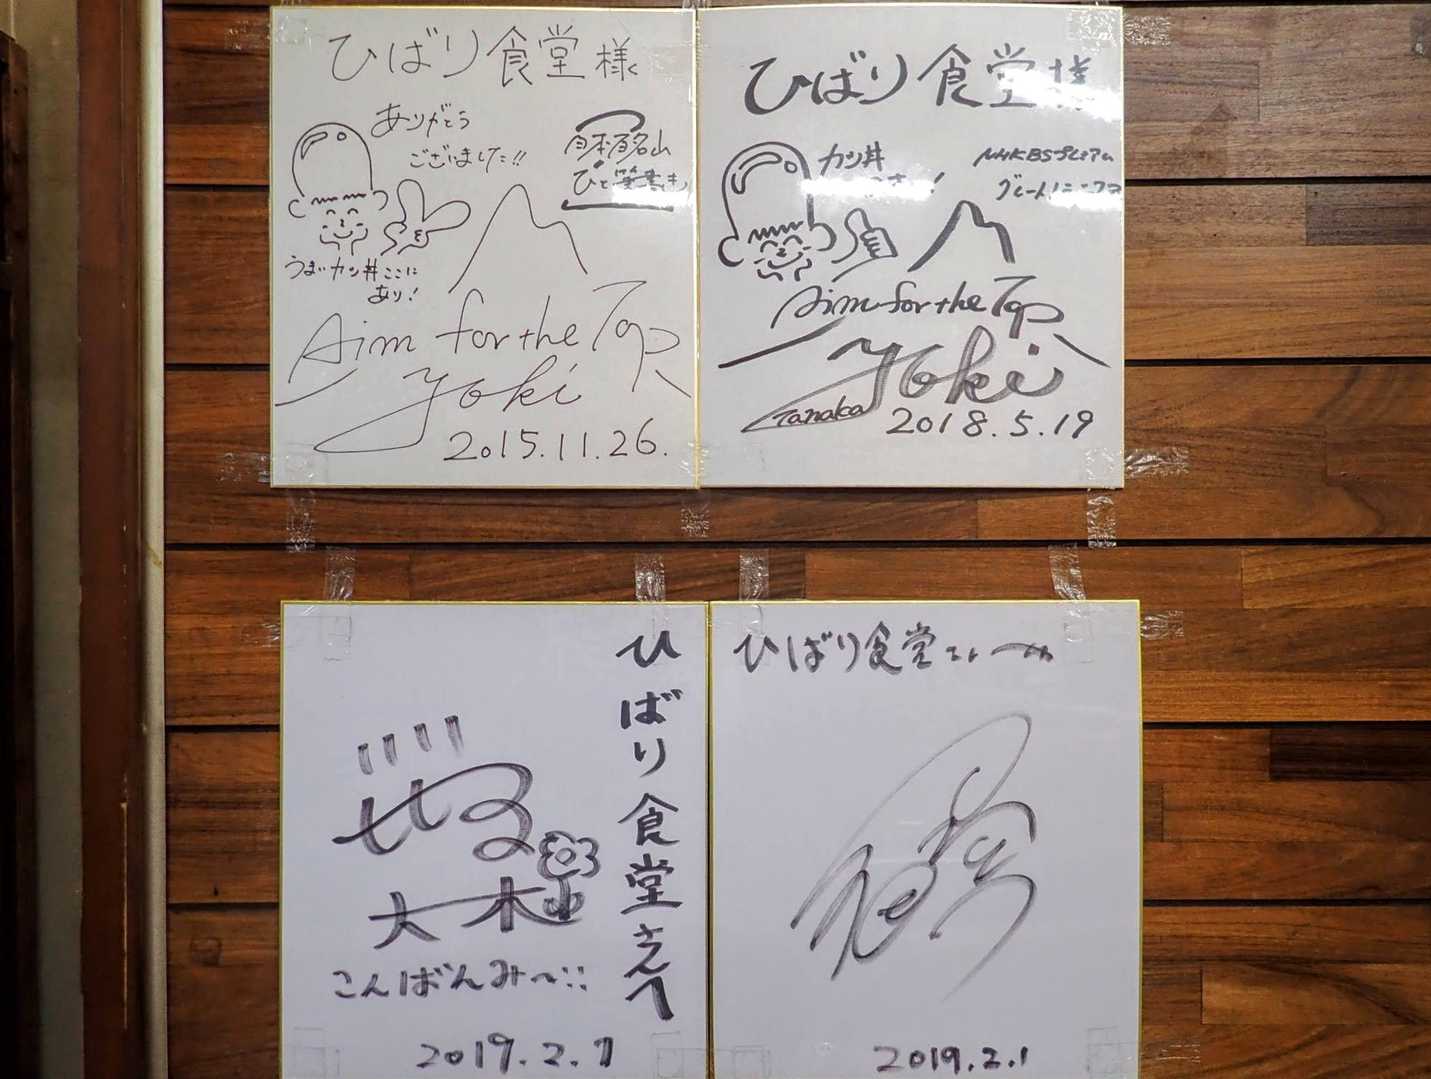 ひばり食堂様
ありがとう
ございました!!
日本百名山
ひと筆書き
うまいカツ丼ここに
あり!
Aim for the Top
Yoki
2015.11.26.
ひばり食堂様
カツ丼
NHKBSプレミアム
グレートトラバース
Aim for the Top
Yoki
Tanaka
2018.5.19
ひばり食堂さんへ
大木
こんばんみ〜!!
2019.2.1
ひばり食堂さんへ
2019.2.1